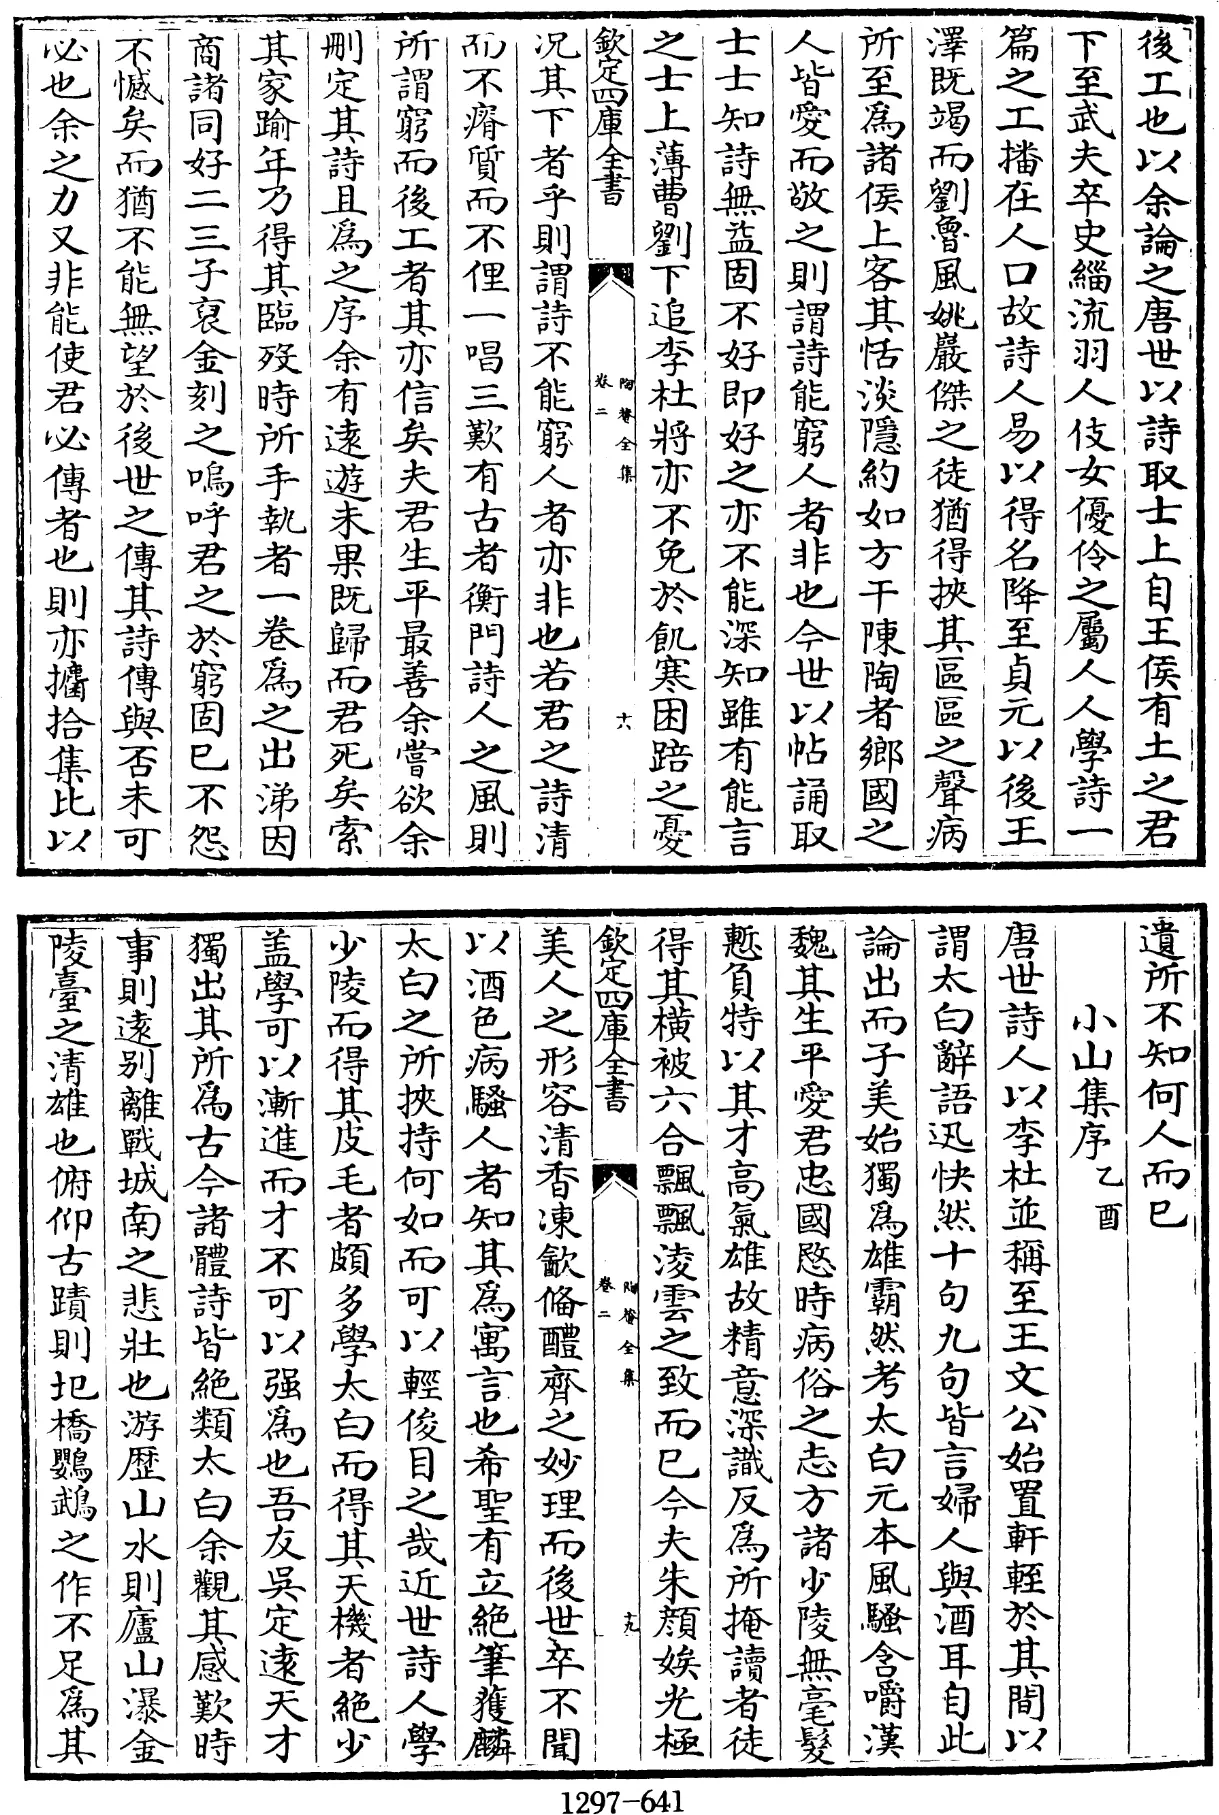 後工也以余論之唐世以詩取士上自王侯有土之君
下至武夫卒史緇流羽人伎女優伶之屬人人學詩一
篇之工播在人口故詩人易以得名降至貞元以後王
澤既竭而劉魯風姚巖傑之徒猶得挾其區區之聲病
所至為諸侯上客其恬淡隱約如方干陳陶者鄉國之
人皆愛而敬之則謂詩能窮人者非也今世以帖誦取
士士知詩無益固不好即好之亦不能深知雖有能言
之士上薄曹劉下追李杜將亦不免於飢寒困踣之憂
欽定四庫全書
陶菴全集
卷二
十六
况其下者乎則謂詩不能窮人者亦非也若君之詩清
而不瘠質而不俚一唱三歎有古者衡門詩人之風則
所謂窮而後工者其亦信矣夫君生平最善余嘗欲余
刪定其詩且為之序余有遠遊未果既歸而君死矣索
其家踰年乃得其臨歿時所手執者一卷為之出涕因
商諸同好二三子裒金刻之嗚呼君之於窮固已不怨
不憾矣而猶不能無望於後世之傳其詩傳與否未可
必也余之力又非能使君必傳者也則亦攟拾集比以
遺所不知何人而已
小山集序乙酉
唐世詩人以李杜並稱至王文公始置軒輊於其間以
謂太白辭語迅快然十句九句皆言婦人與酒耳自此
論出而子美始獨為雄霸然考太白元本風騷含嚼漢
魏其生平愛君忠國愍時病俗之志方諸少陵無毫髮
慙負特以其才高氣雄故精意深識反為所掩讀者徒
得其橫被六合飄飄淩雲之致而已今夫朱顏娭光極
欽定四庫全書
陶菴全集
卷二
十九
美人之形容清香凍歙俻醴齊之妙理而後世卒不聞
以酒色病騷人者知其為寓言也希聖有立絶筆獲麟
太白之所挾持何如而可以輕俊目之哉近世詩人學
少陵而得其皮毛者頗多學太白而得其天機者絶少
盖學可以漸進而才不可以强為也吾友吳定遠天才
獨出其所為古今諸體詩皆絶類太白余觀其感歎時
事則遠别離戰城南之悲壯也游歷山水則廬山瀑金
陵臺之清雄也俯仰古蹟則圯橋鸚鵡之作不足為其
1297-641